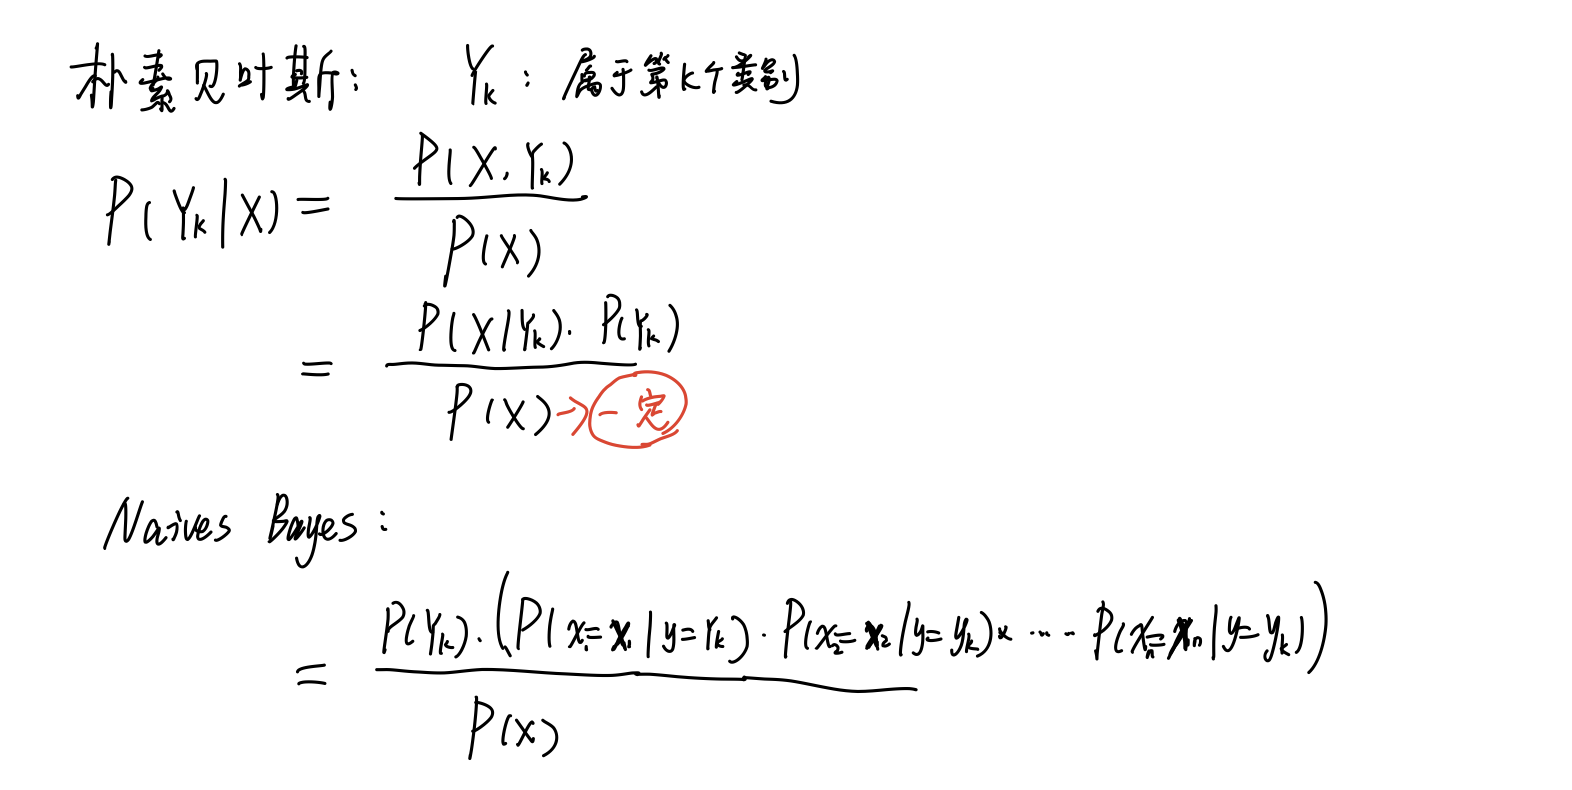 朴素贝叶斯: Yₖ: 属于第k个类别
P(Yₖ|X) = P(X, Yₖ) / P(X)
= P(X|Yₖ)· P(Yₖ) / P(X) → 一定
Naives Bayes:
= P(Yₖ)·(P(x₁=x₁|y=Yₖ)·P(x₂=x₂|y=yₖ)× ···· P(xₙ=xₙ|y=yₖ)) / P(X)